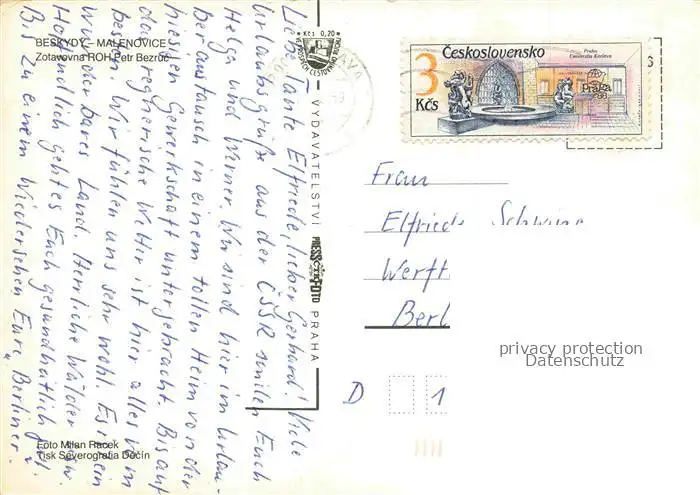 BESKYDY – MALENOVICE
Zotavovna ROH Petr Bezruč
Kčs 0,20
Liebe Tante Elfriede, lieber Gerhard! Viele
Urlaubsgrüße aus der ČSSR senden Euch
Helga und Werner. Wir sind hier im Urlau-
beraustausch in einem tollen Heim von der
hiesigen Gewerkschaft untergebracht. Bis auf
das regnerische Wetter ist hier alles vom
besten. Wir fühlen uns sehr wohl. Es ist ein
wunderbares Land. Herrliche Wälder usw.
Hoffentlich geht es Euch gesundheitlich gut.
Bis zu einem Wiedersehen Eure "Berliner".
Foto Milan Racek
Tisk Severografia Děčín
VYDAVATELSTVÍ PRESSFOTO PRAHA
Československo
3
Kčs
Praha
Universita Karlova
Praha
88
3
Frau
Elfriede
Werft
Berl
D 1
privacy protection
Datenschutz